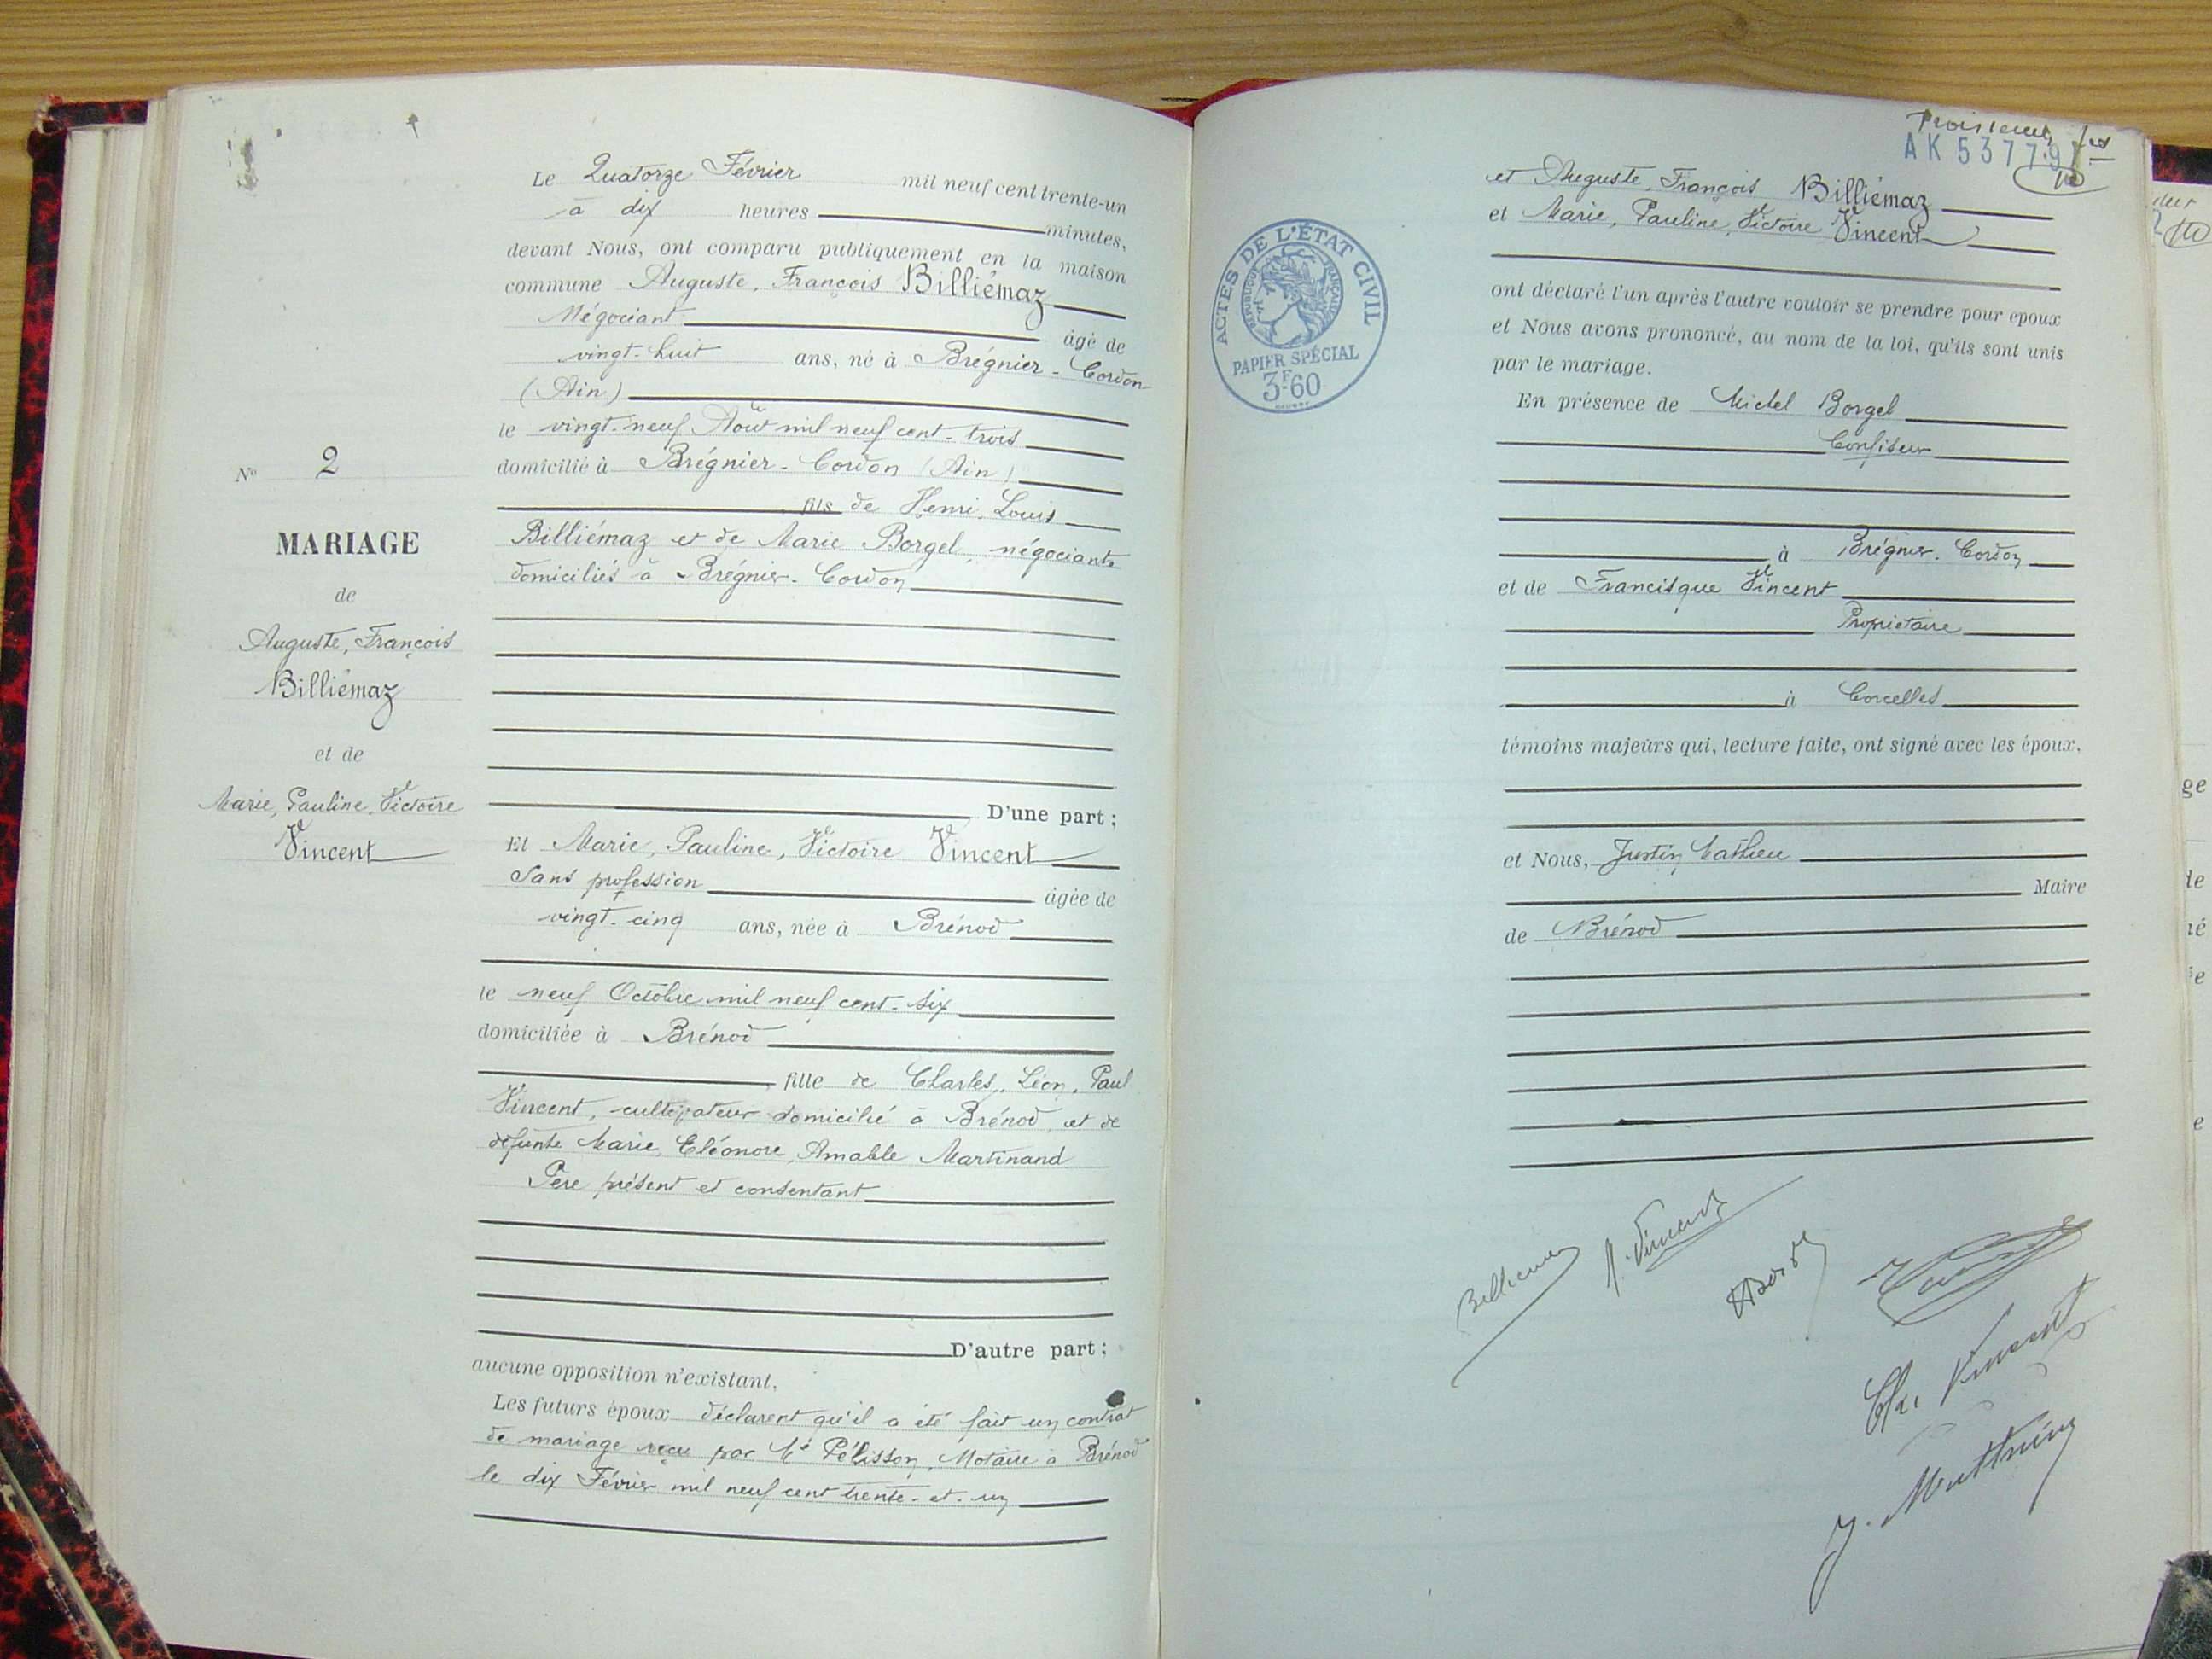 Le Quatorze Février mil neuf cent trente-un
à dix heures minutes,
devant Nous, ont comparu publiquement en la maison
commune Auguste, François Billiémaz
Négociant âgé de
vingt-huit ans, né à Brégnier-Cordon
(Ain)
le vingt-neuf Août mil neuf cent-trois
domicilié à Brégnier-Cordon (Ain)
fils de Henri, Louis
Billiémaz et de Marie Borgel, négociants
domiciliés à Brégnier-Cordon
D'une part;
N° 2
MARIAGE
de
Auguste, François
Billiémaz
et de
Marie, Pauline, Victoire
Vincent
Et Marie, Pauline, Victoire Vincent
Sans profession âgée de
vingt-cinq ans, née à Brénod
le neuf Octobre mil neuf cent-six
domiciliée à Brénod
fille de Charles, Léon, Paul
Vincent, cultivateur domicilié à Brénod, et de
défunte Marie, Eléonore, Amable Martinand
Père présent et consentant
D'autre part;
aucune opposition n'existant,
Les futurs époux déclarent qu'il a été fait un contrat
de mariage reçu par Me Pélisson, Notaire à Brénod
le dix Février mil neuf cent trente-et-un
AK 53779
et Auguste, François Billiémaz
et Marie, Pauline, Victoire Vincent
ACTES DE L'ÉTAT CIVIL
RÉPUBLIQUE FRANÇAISE
PAPIER SPÉCIAL
3F60
ont déclaré l'un après l'autre vouloir se prendre pour époux
et Nous avons prononcé, au nom de la loi, qu'ils sont unis
par le mariage.
En présence de Michel Borgel
Confiseur
à Brégnier-Cordon
et de Francisque Vincent
Propriétaire
à Corcelles
témoins majeurs qui, lecture faite, ont signé avec les époux.
et Nous, Justin Mathieu
Maire
de Brénod
Vincent
Vincent